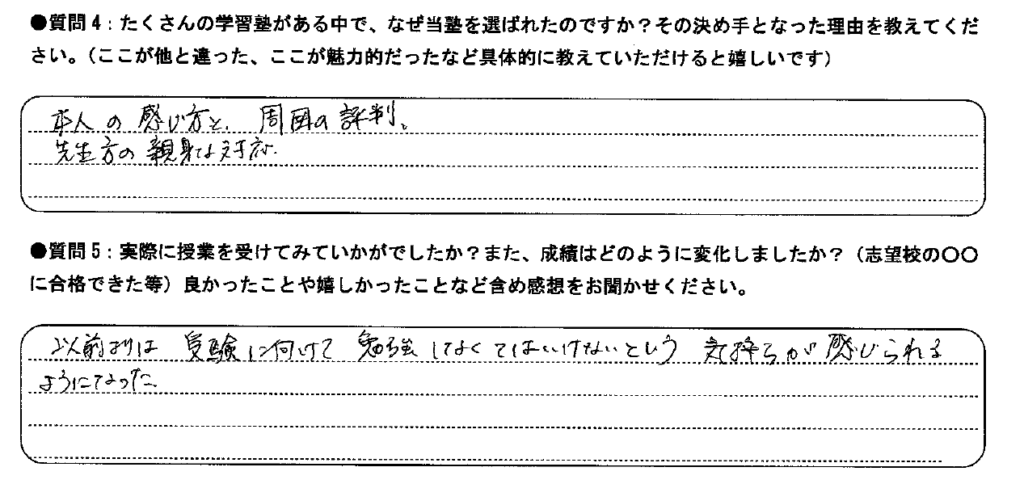 ●質問4：たくさんの学習塾がある中で、なぜ当塾を選ばれたのですか？その決め手となった理由を教えてくだ
さい。（ここが他と違った、ここが魅力的だったなど具体的に教えていただけると嬉しいです）
本人の感じ方と、周囲の評判。
先生方の親身な対応。
●質問5：実際に授業を受けてみていかがでしたか？また、成績はどのように変化しましたか？（志望校の〇〇
に合格できた等）良かったことや嬉しかったことなど含め感想をお聞かせください。
以前よりは 受験に向けて 勉強しなくてはいけないという 気持ちが感じられる
ようになった。